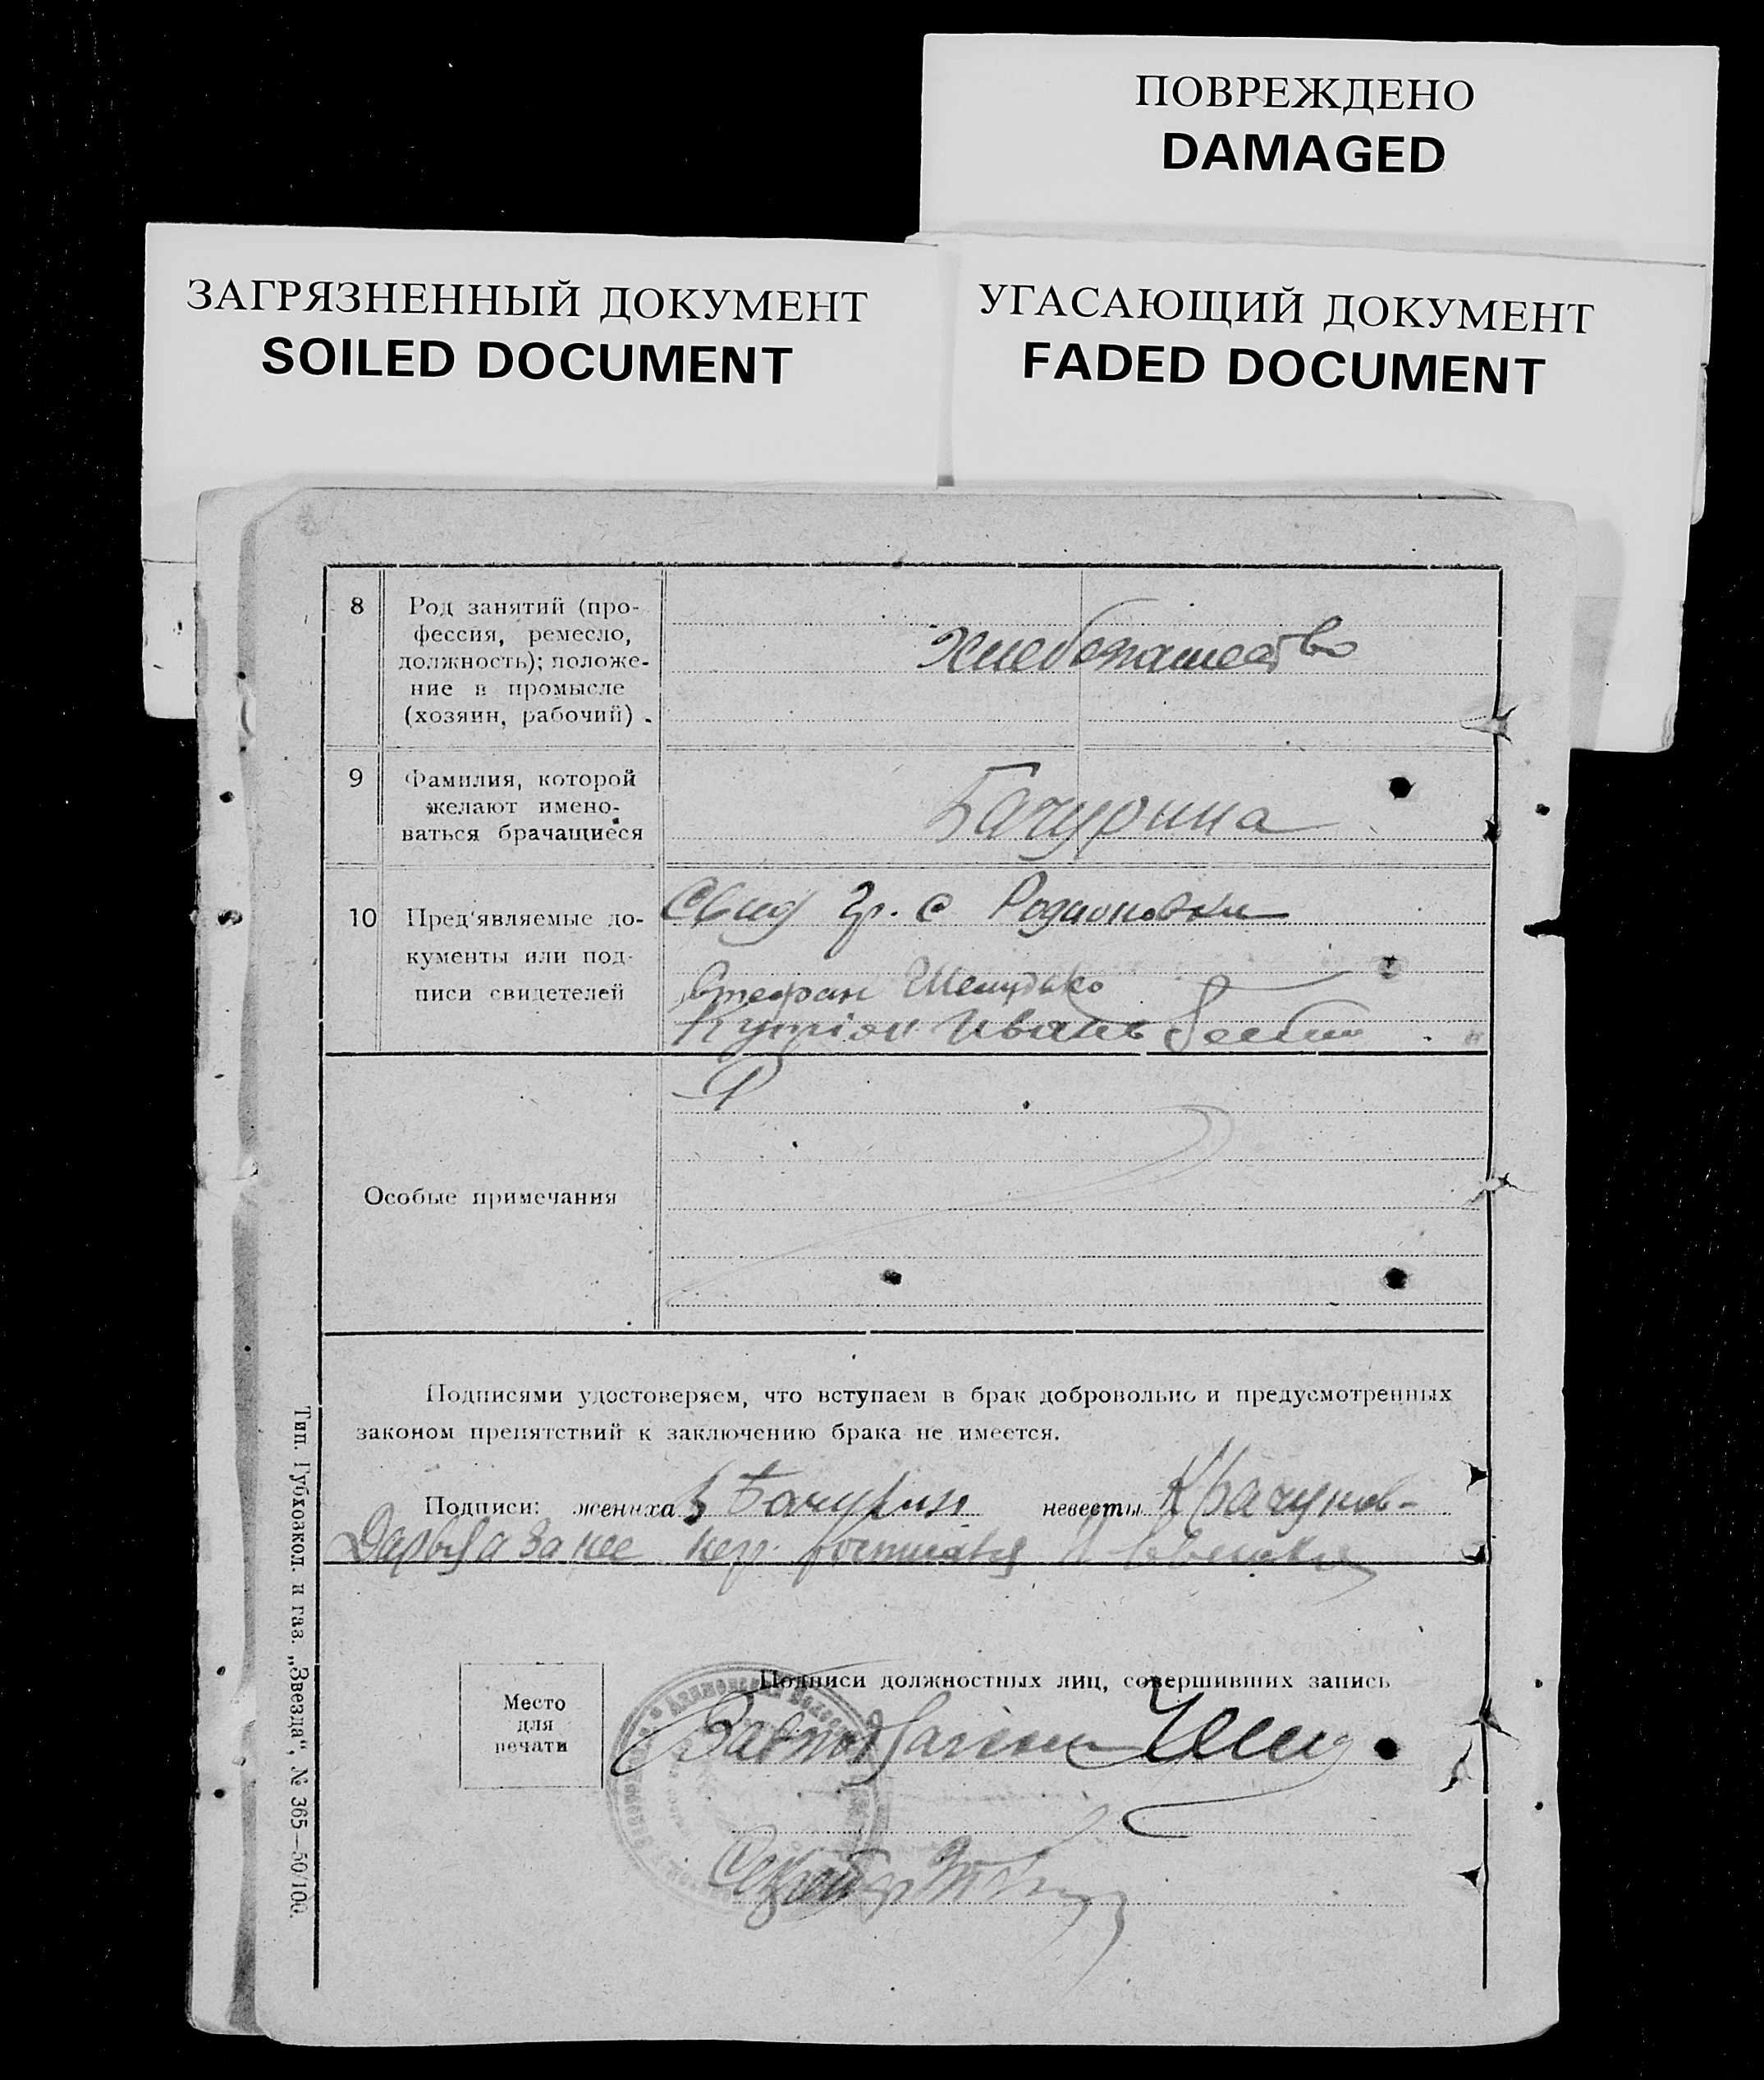 ПОВРЕЖДЕНО
DAMAGED
ЗАГРЯЗНЕННЫЙ ДОКУМЕНТ
SOILED DOCUMENT
УГАСАЮЩИЙ ДОКУМЕНТ
FADED DOCUMENT
8
Род занятий (про-
фессия, ремесло,
должность); положе-
ние в промысле
(хозяин, рабочий).
Хлебопашество
9
Фамилия, которой
желают имено-
ваться брачащиеся
Бачурина
10
Пред'являемые до-
кументы или под-
писи свидетелей
Свид гр. с Родионовки
Стефан
Иванъ
Особые примечания
Подписями удостоверяем, что вступаем в брак добровольно и предусмотренных
законом препятствий к заключению брака не имеется.
Подписи: жениха Бачурин невесты
за нее
Место
для
печати
Подписи должностных лиц, совершивших запись
Тип. Губхозкол. и газ. „Звезда“, № 365—50/100.